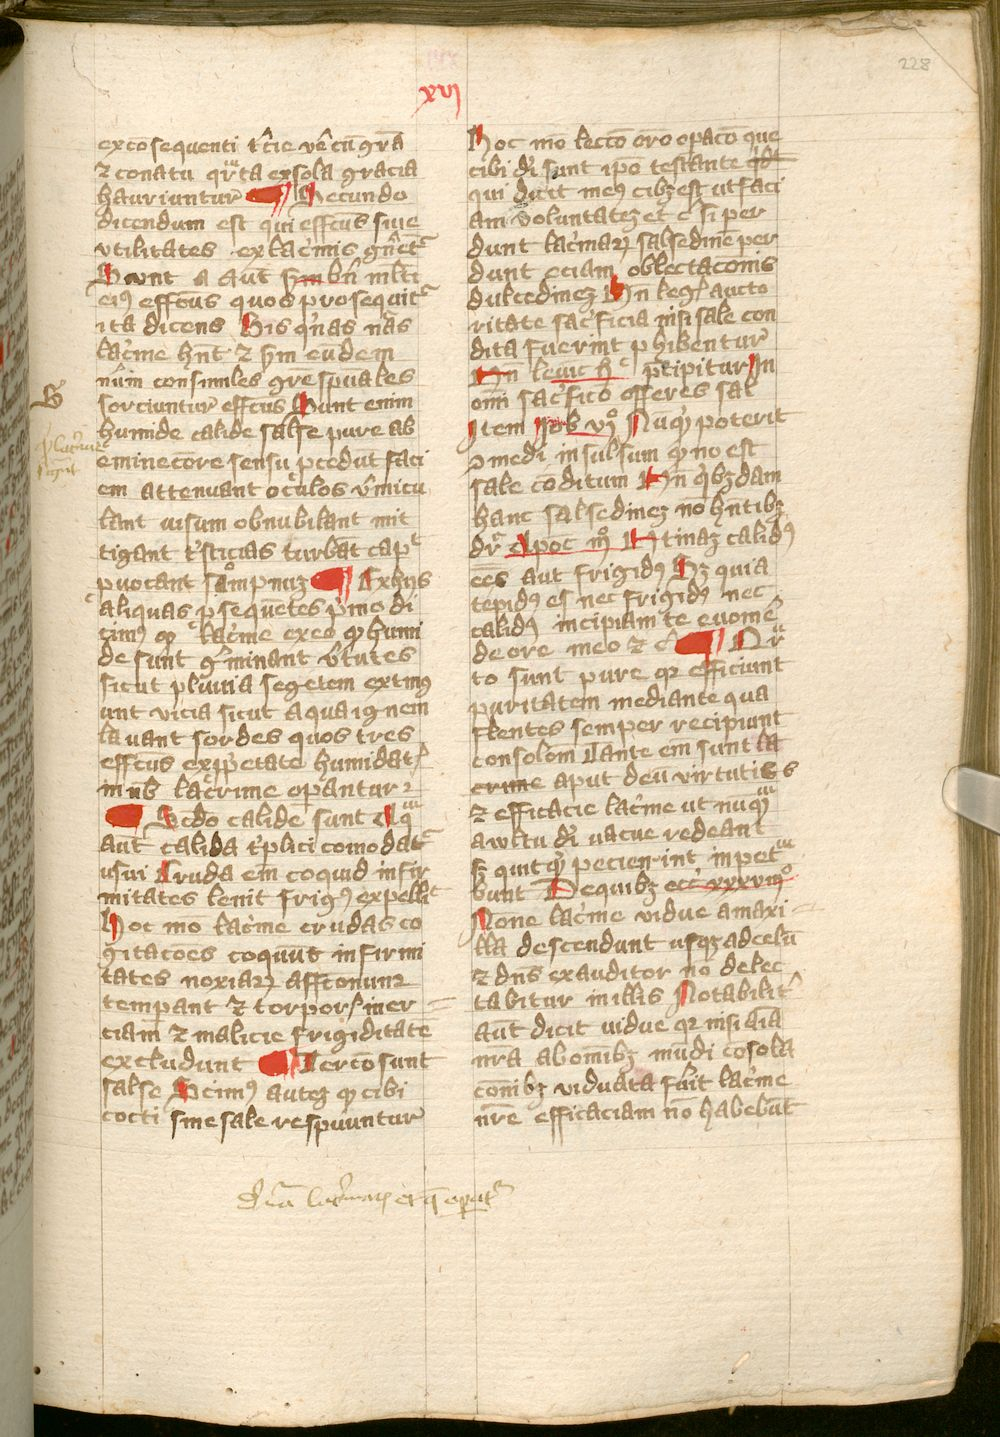 228
xvj
excōsequenti t͛cie vē cū grā
⁊ conatu qͣrta ex sola gracia
hauriuntur ¶ Secundo
dicendum est qui effcūs siue
vtilitates ex lac͛mis gn͛ēt
Sunt a aūt bn̄ mlti
eiꝰ effcūs quos prosequit͛
ita dicens His qͥnas nr̄as
lac͛me hn̄t ⁊ hm̄ eūdem
nūm consimiles gr̄e spūales
sorciuntur effcūs Sunt enim
humide calide salse pure ab
eminecōre sensu ꝓcedūt faci
em attenuant oculos v͛micu
lant uisum obnubilant mit
tigant tͥsticias turbāt capᵗ
ꝓuocant sompnuꝫ ¶ Ex hijs
aliquas ꝓsequētes pͥmo di
cimꝰ ꝙ lac͛me ex eo ꝙ humi
de sunt g͛minant v͛tutes
sicut pluuia segetem extīgu
unt vicia sicut aqua ignem
lauant sordes quos tres
effcūs ex ꝓpͥetate humidat͛
in nb̄ lac͛rime opantur
¶ Scd̄o calide sunt Aqͣ
aūt calida tͥplici comodat͛
usui Cruda em̄ coquid infir
mitates lenit frigꝰ expellit
Hoc mō lac͛me crudas co
gitacōes coquūt infirmi
tates noxiaꝝ affcōnum
tempant ⁊ torpor͛ iner
ciam ⁊ malicie frigiditatē
excludunt ¶ Tercō sunt
salse Scimꝰ auteꝫ ꝙ cibi
cocti sine sale respuuntur
Hoc mō leccō orō opacō que
cibi di sunt ipō testante
qui dicit meꝰ cibꝫ est ut faci
am voluntateꝫ et c̄ si per
dunt lac͛maꝝ salsedinē per
dunt eciam oblectacōnis
dulcedineꝫ Vn̄ leg͛ aucto
ritate sac͛ficia nisi sale con
dita fuerint ꝓhibentur
Vn̄ leuic̄ ij͛ p͛cipitur In
om̄i sac͛ficō offeres sal
Item Job vjͦ Nuqͥd poterit
ꝯmedi insulsum ꝙ nō est
sale cōditum Vn̄ qͥbꝫdam
hanc salsedineꝫ nō hn̄tibꝫ
dr͛ Apoc iijͦ Vtinaꝫ calidꝰ
eēs aut frigidꝰ Sꝫ quia
tepidꝰ es nec frigidꝰ nec
calidꝰ incipiam te euomē
de ore meo ⁊ c̄ ¶ Qͣr
to sunt pure qꝛ efficiunt
puritatem mediante qua
flentes semper recipiunt
consolōm Tante em̄ sunt la
crime aput deū virtutis
⁊ efficacie lac͛me ut nūqͣ
a wltu dī uacue redeant
sꝫ quitqͥd pecierint inpet͛
bunt De quibꝫ ecc͛ xxxvͦ
None lac͛me vidue a maxi
lla descendunt usqꝫ ad celū
⁊ dn̄s exauditor nō delec
tabitur in illis Notabilit͛
aūt dicit uidue qꝛ nisi aīa
nr̄a ab om̄ibꝫ mūdi cōsola
cōnibꝫ viduata fūit lac͛me
nr̄e efficaciam nō habebūt